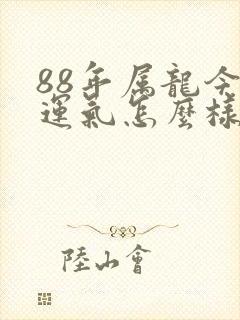 88年属龍今
運氣怎麼樣
陸山會